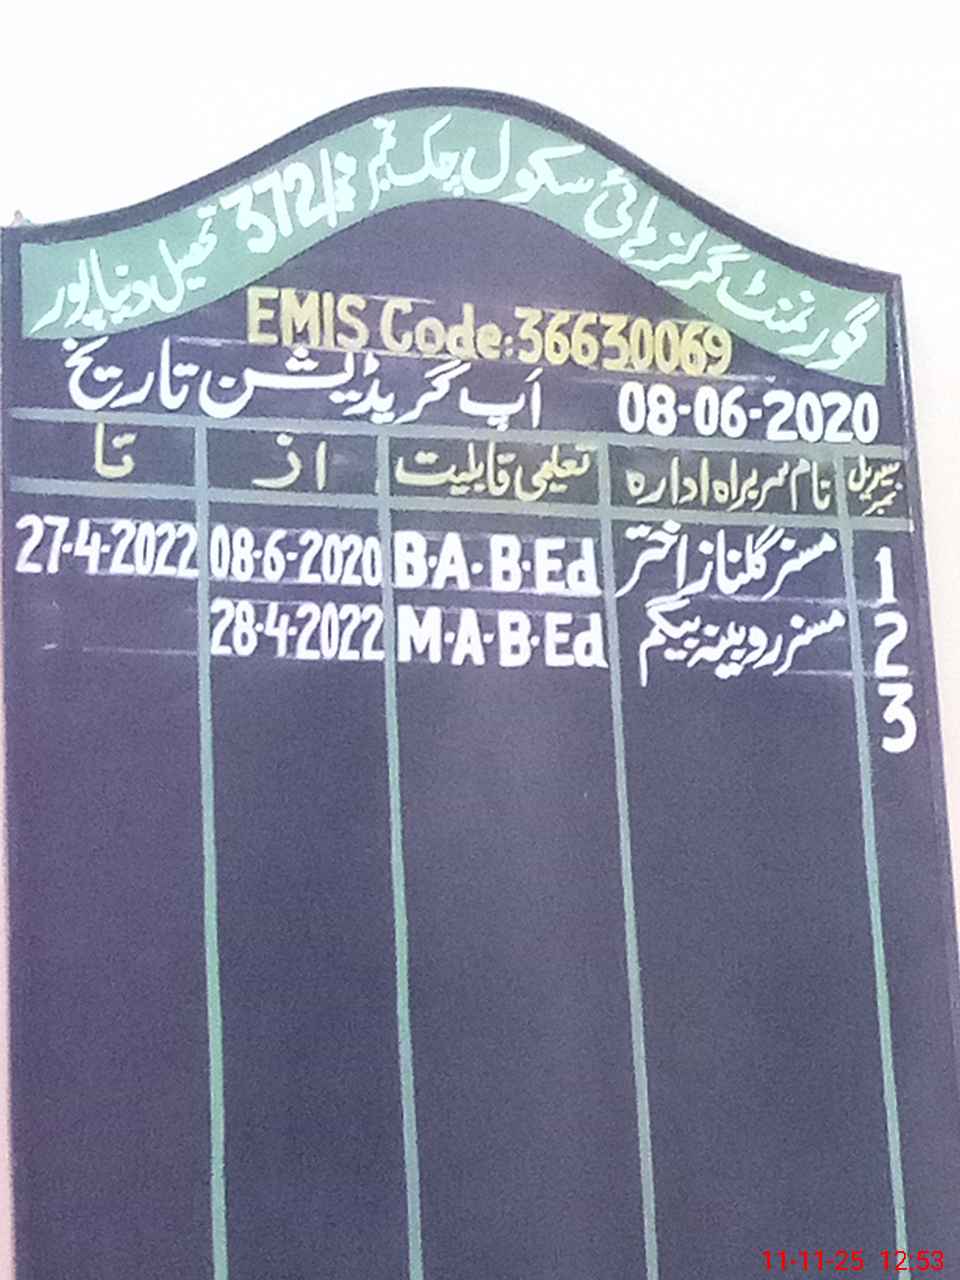 گورنمنٹ گرلز ہائی سکول چک نمبر 372/ تحصیل دنیاپور
EMIS Code:36630069
اَپ گریڈیشن تاریخ 08-06-2020
سیریل نمبر نام سربراہ ادارہ تعلیمی قابلیت از تا
1 مسز گلناز اختر B.A.B.Ed 08-6-2020 27-4-2022
2 مسز روبینہ بیگم M.A.B.Ed 28-4-2022
3
11-11-25 12:53